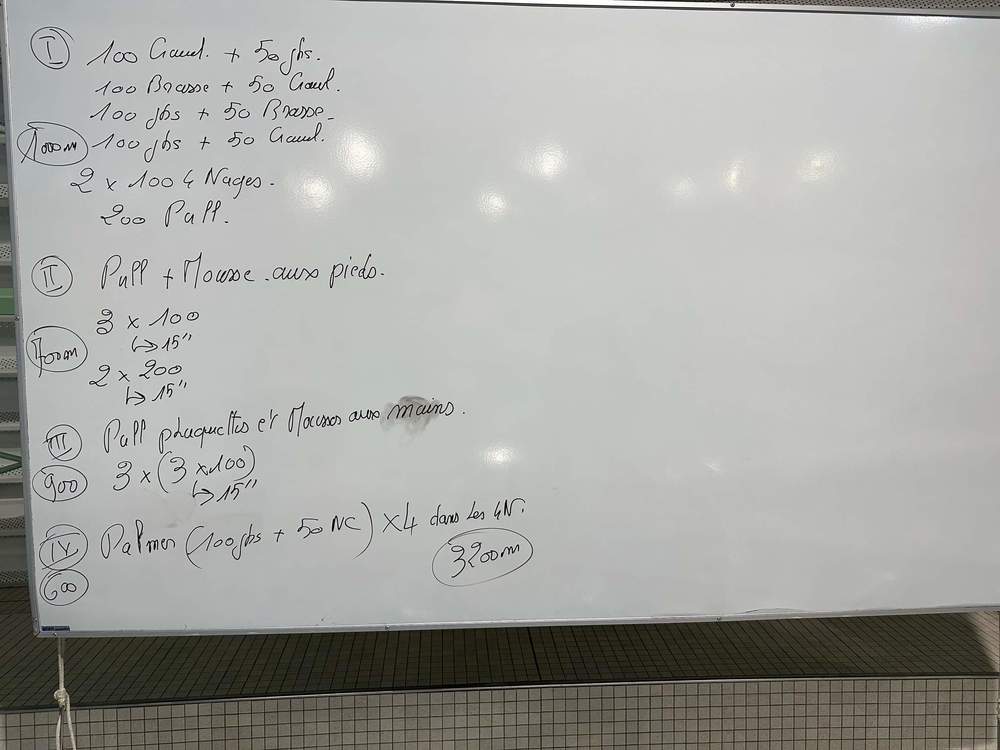 I 100 Crawl. + 50 jbs.
100 Brasse + 50 Crawl.
100 jbs + 50 Brasse.
1000m 100 jbs + 50 Crawl.
2 x 100 4 Nages.
200 Pull.
II Pull + Mousse aux pieds.
3 x 100
↳ 15"
700m
2 x 200
↳ 15"
III Pull plaquettes et Mousses aux mains.
900 3 x (3 x 100)
↳ 15"
IV Palmes (100 jbs + 50 NC) x4 dans les 4N.
600
3200m